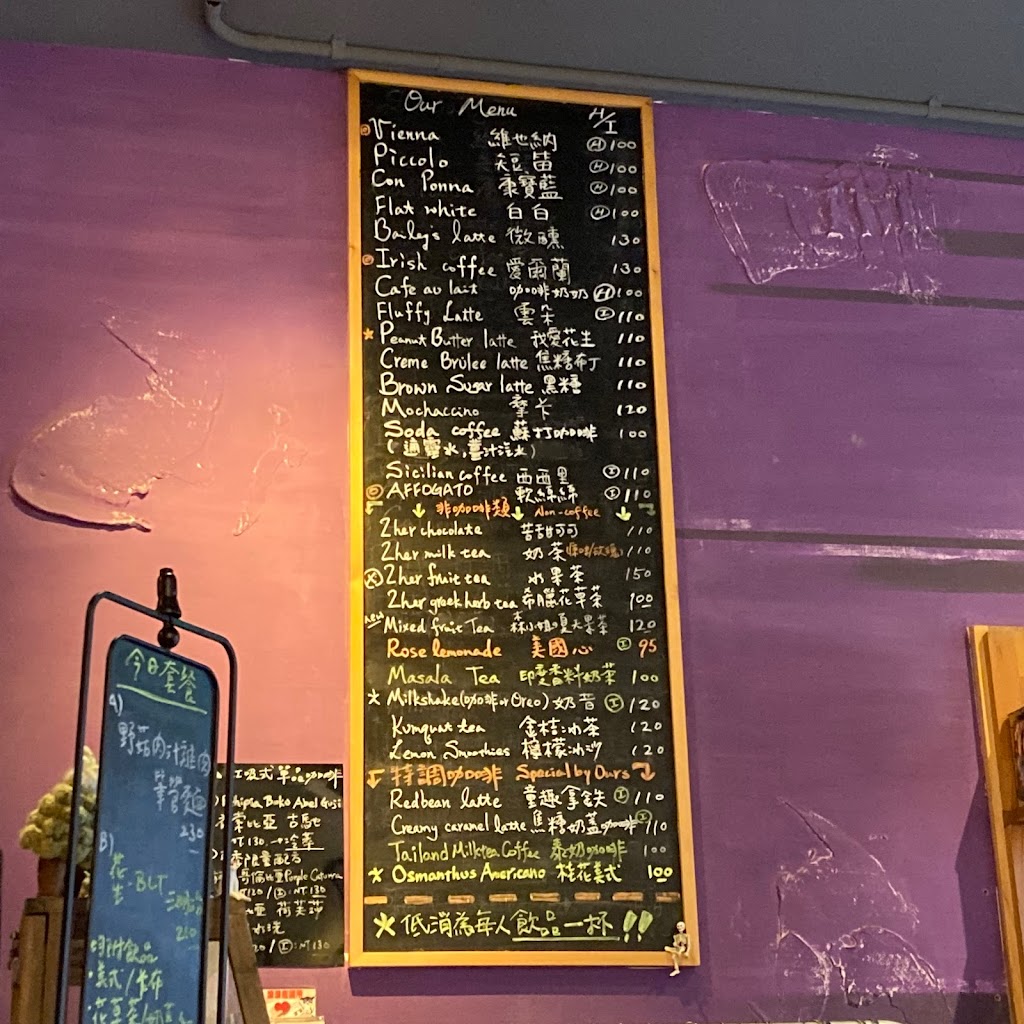 Our Menu H/I
Vienna 維也納 Ⓗ100
Piccolo 短笛 Ⓗ100
Con Ponna 康寶藍 Ⓗ100
Flat white 白白 Ⓗ100
Bailey's latte 微醺 130
Irish coffee 愛爾蘭 130
Cafe au lait 咖啡奶奶 Ⓗ100
Fluffy Latte 雲朵 Ⓘ110
★Peanut Butter latte 我愛花生 110
Creme Brûlee latte 焦糖布丁 110
Brown Sugar latte 黑糖 110
Mochaccino 摩卡 120
Soda coffee 蘇打咖啡 100
(通寧水,薑汁汽水)
Sicilian coffee 西西里 Ⓘ110
AFFOGATO 軟綿綿 Ⓘ110
非咖啡類 Non-coffee
2her chocolate 苦甜可可 110
2her milk tea 奶茶 110
2her fruit tea 水果茶 150
2her greek herb tea 希臘花草茶 100
new Mixed fruit Tea 森小姐の夏天果茶 120
Rose lemonade 美國心 Ⓘ 95
Masala Tea 印度香料奶茶 100
★Milkshake(咖啡or Oreo) 奶昔 Ⓘ120
Kumquat tea 金桔冰茶 120
Lemon Smoothies 檸檬冰沙 120
特調咖啡 Special by Ours
Redbean latte 童趣拿鐵 Ⓘ110
Creamy caramel latte 焦糖奶蓋咖啡 Ⓘ110
Tailand Milktea Coffee 泰奶咖啡 100
★Osmanthus Americano 桂花美式 100
★低消為每人飲品一杯!!
今日套餐
A)
野菇肉汁雞肉
筆管麵
230
B)
花生.BLT
三明治
210
附飲品
·美式/
·花草茶/
虹吸式單品咖啡
索比亞 古馬也
NT130
季限量配方
Purple Caturra
NT120/Ⓘ:NT130
荷芙莎
水洗
120/Ⓘ:NT130